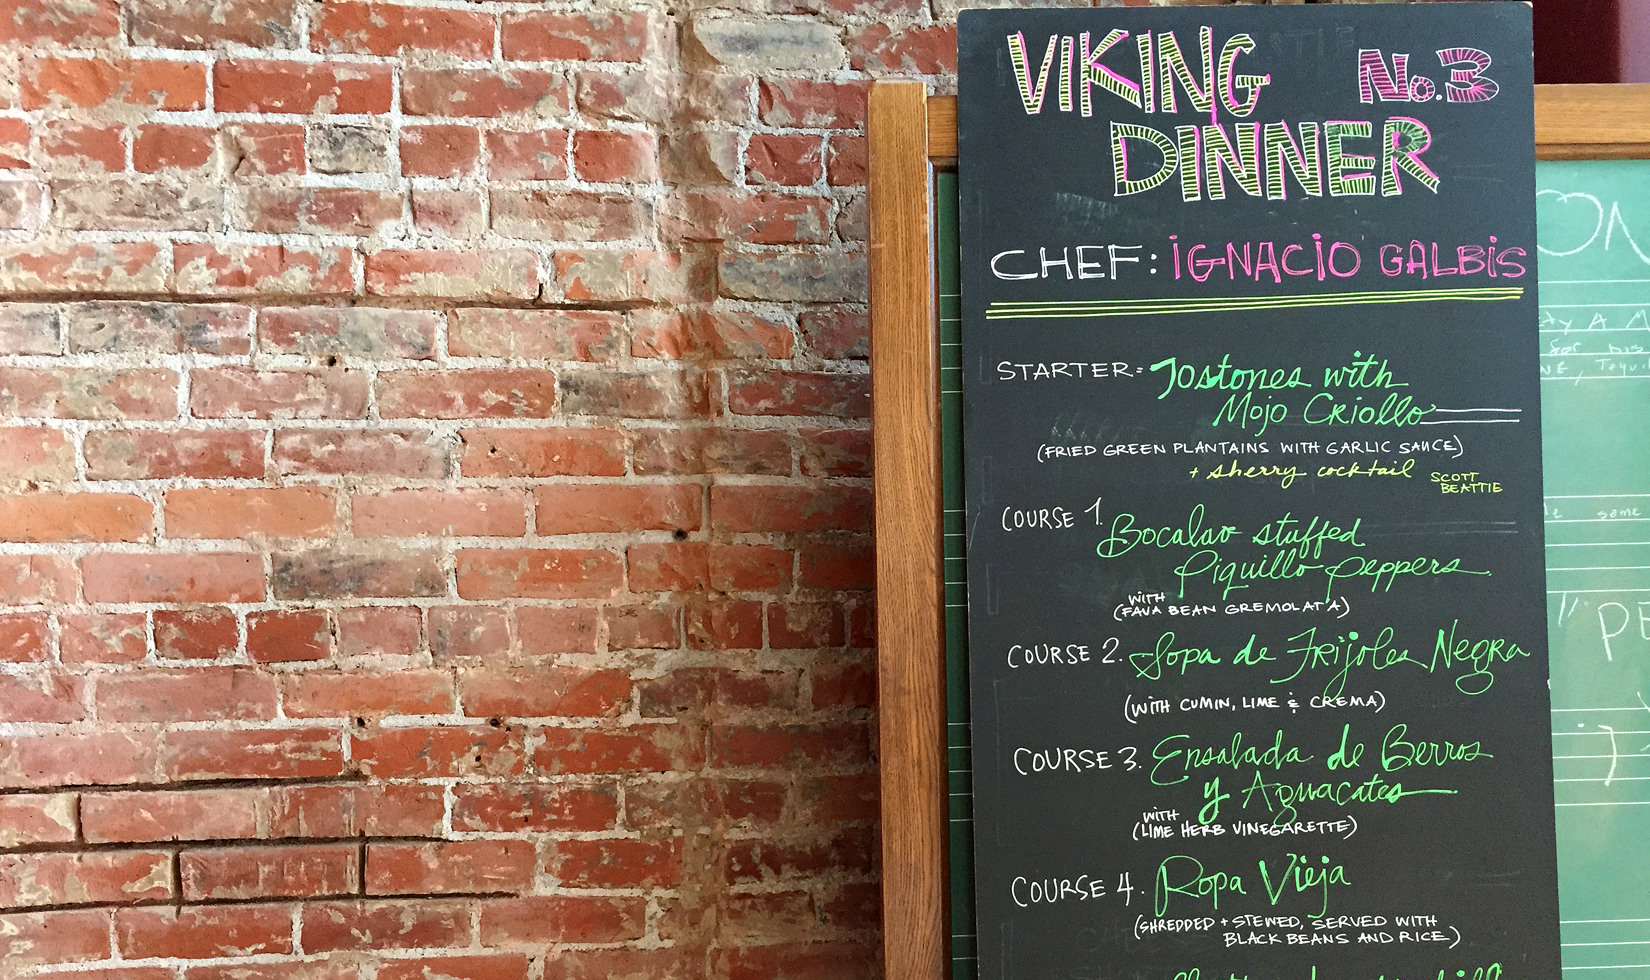 VIKING No.3
DINNER
CHEF: IGNACIO GALBIS
STARTER: Tostones with
Mojo Criollo
(FRIED GREEN PLANTAINS WITH GARLIC SAUCE)
+ sherry cocktail SCOTT
BEATTIE
COURSE 1. Bocalao stuffed
Piquillo Peppers
WITH
(FAVA BEAN GREMOLATA)
COURSE 2. Sopa de Frijoles Negra
(WITH CUMIN, LIME & CREMA)
COURSE 3. Ensalada de Berros
y Aguacates
WITH
(LIME HERB VINEGARETTE)
COURSE 4. Ropa Vieja
(SHREDDED + STEWED, SERVED WITH
BLACK BEANS AND RICE)
ON
AY A M
for his
some
"PE